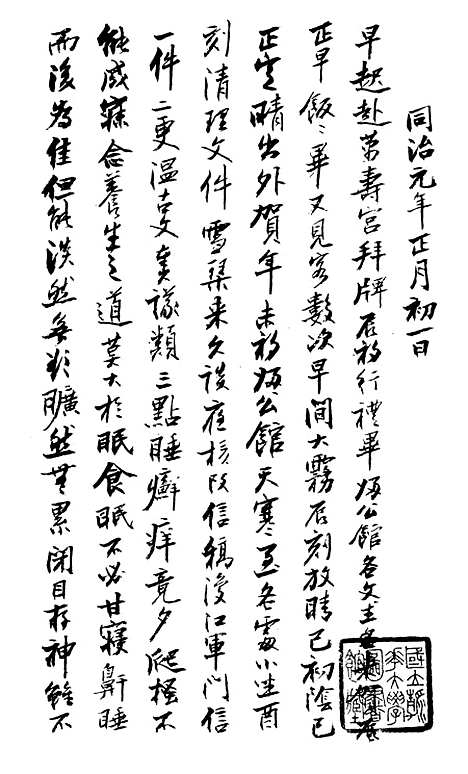 同治元年正月初一日
早起赴萬壽宮拜牌辰初行禮畢歸公館各文武
正早飯飯畢又見客數次早間大霧辰刻放晴巳初陰巳
正定晴出外賀年未初歸公館天寒至各處小坐酉
刻清理文件雪琴來久談夜核改信稿復江軍門信
一件二更溫古文奏議類三點睡癬痒竟夕爬搔不
能成寐念養生之道莫大於眠食眠不必甘寢鼾睡
而後為佳但能淡然無欲曠然無累閉目存神雖不